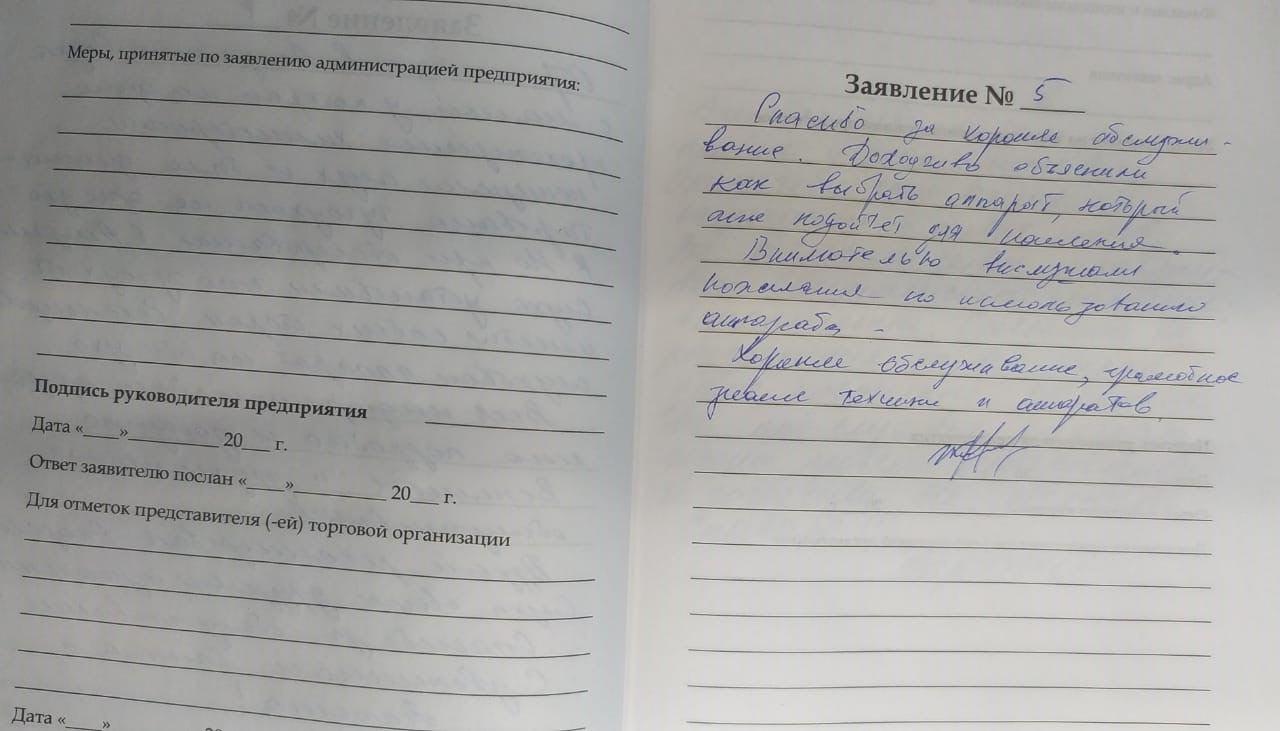 Меры, принятые по заявлению администрацией предприятия:
Подпись руководителя предприятия
Дата «____»__________ 20___ г.
Ответ заявителю послан «____»__________ 20___ г.
Для отметок представителя (-ей) торговой организации
Дата «____»
Заявление № 5
Спасибо за хорошее обслужи-
вание. Доходчиво объяснили
как выбрать аппарат, который
подойдет для
Внимательно выслушали
пожелания по использованию
аппарата.
Хорошее обслуживание, грамотное
знание техники и аппаратов